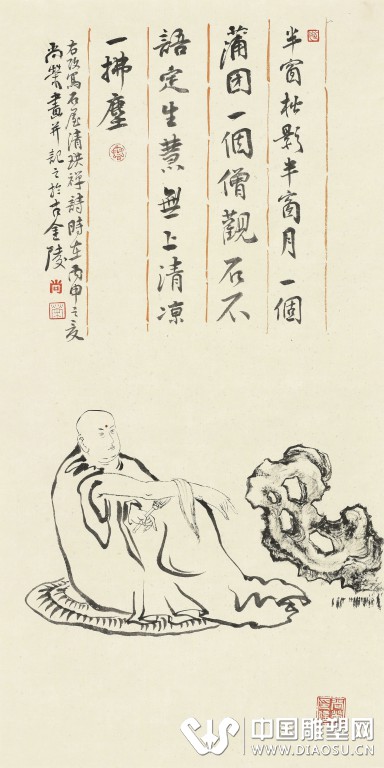 半窗松影半窗月一個
蒲团一個僧觀石不
語定生慧無上清凉
一拂塵
右改寫石屋清珙禪詩時在丙申之夏
尚榮畫并記之於古金陵
尚
中国雕塑网
WWW.DIAOSU.CN